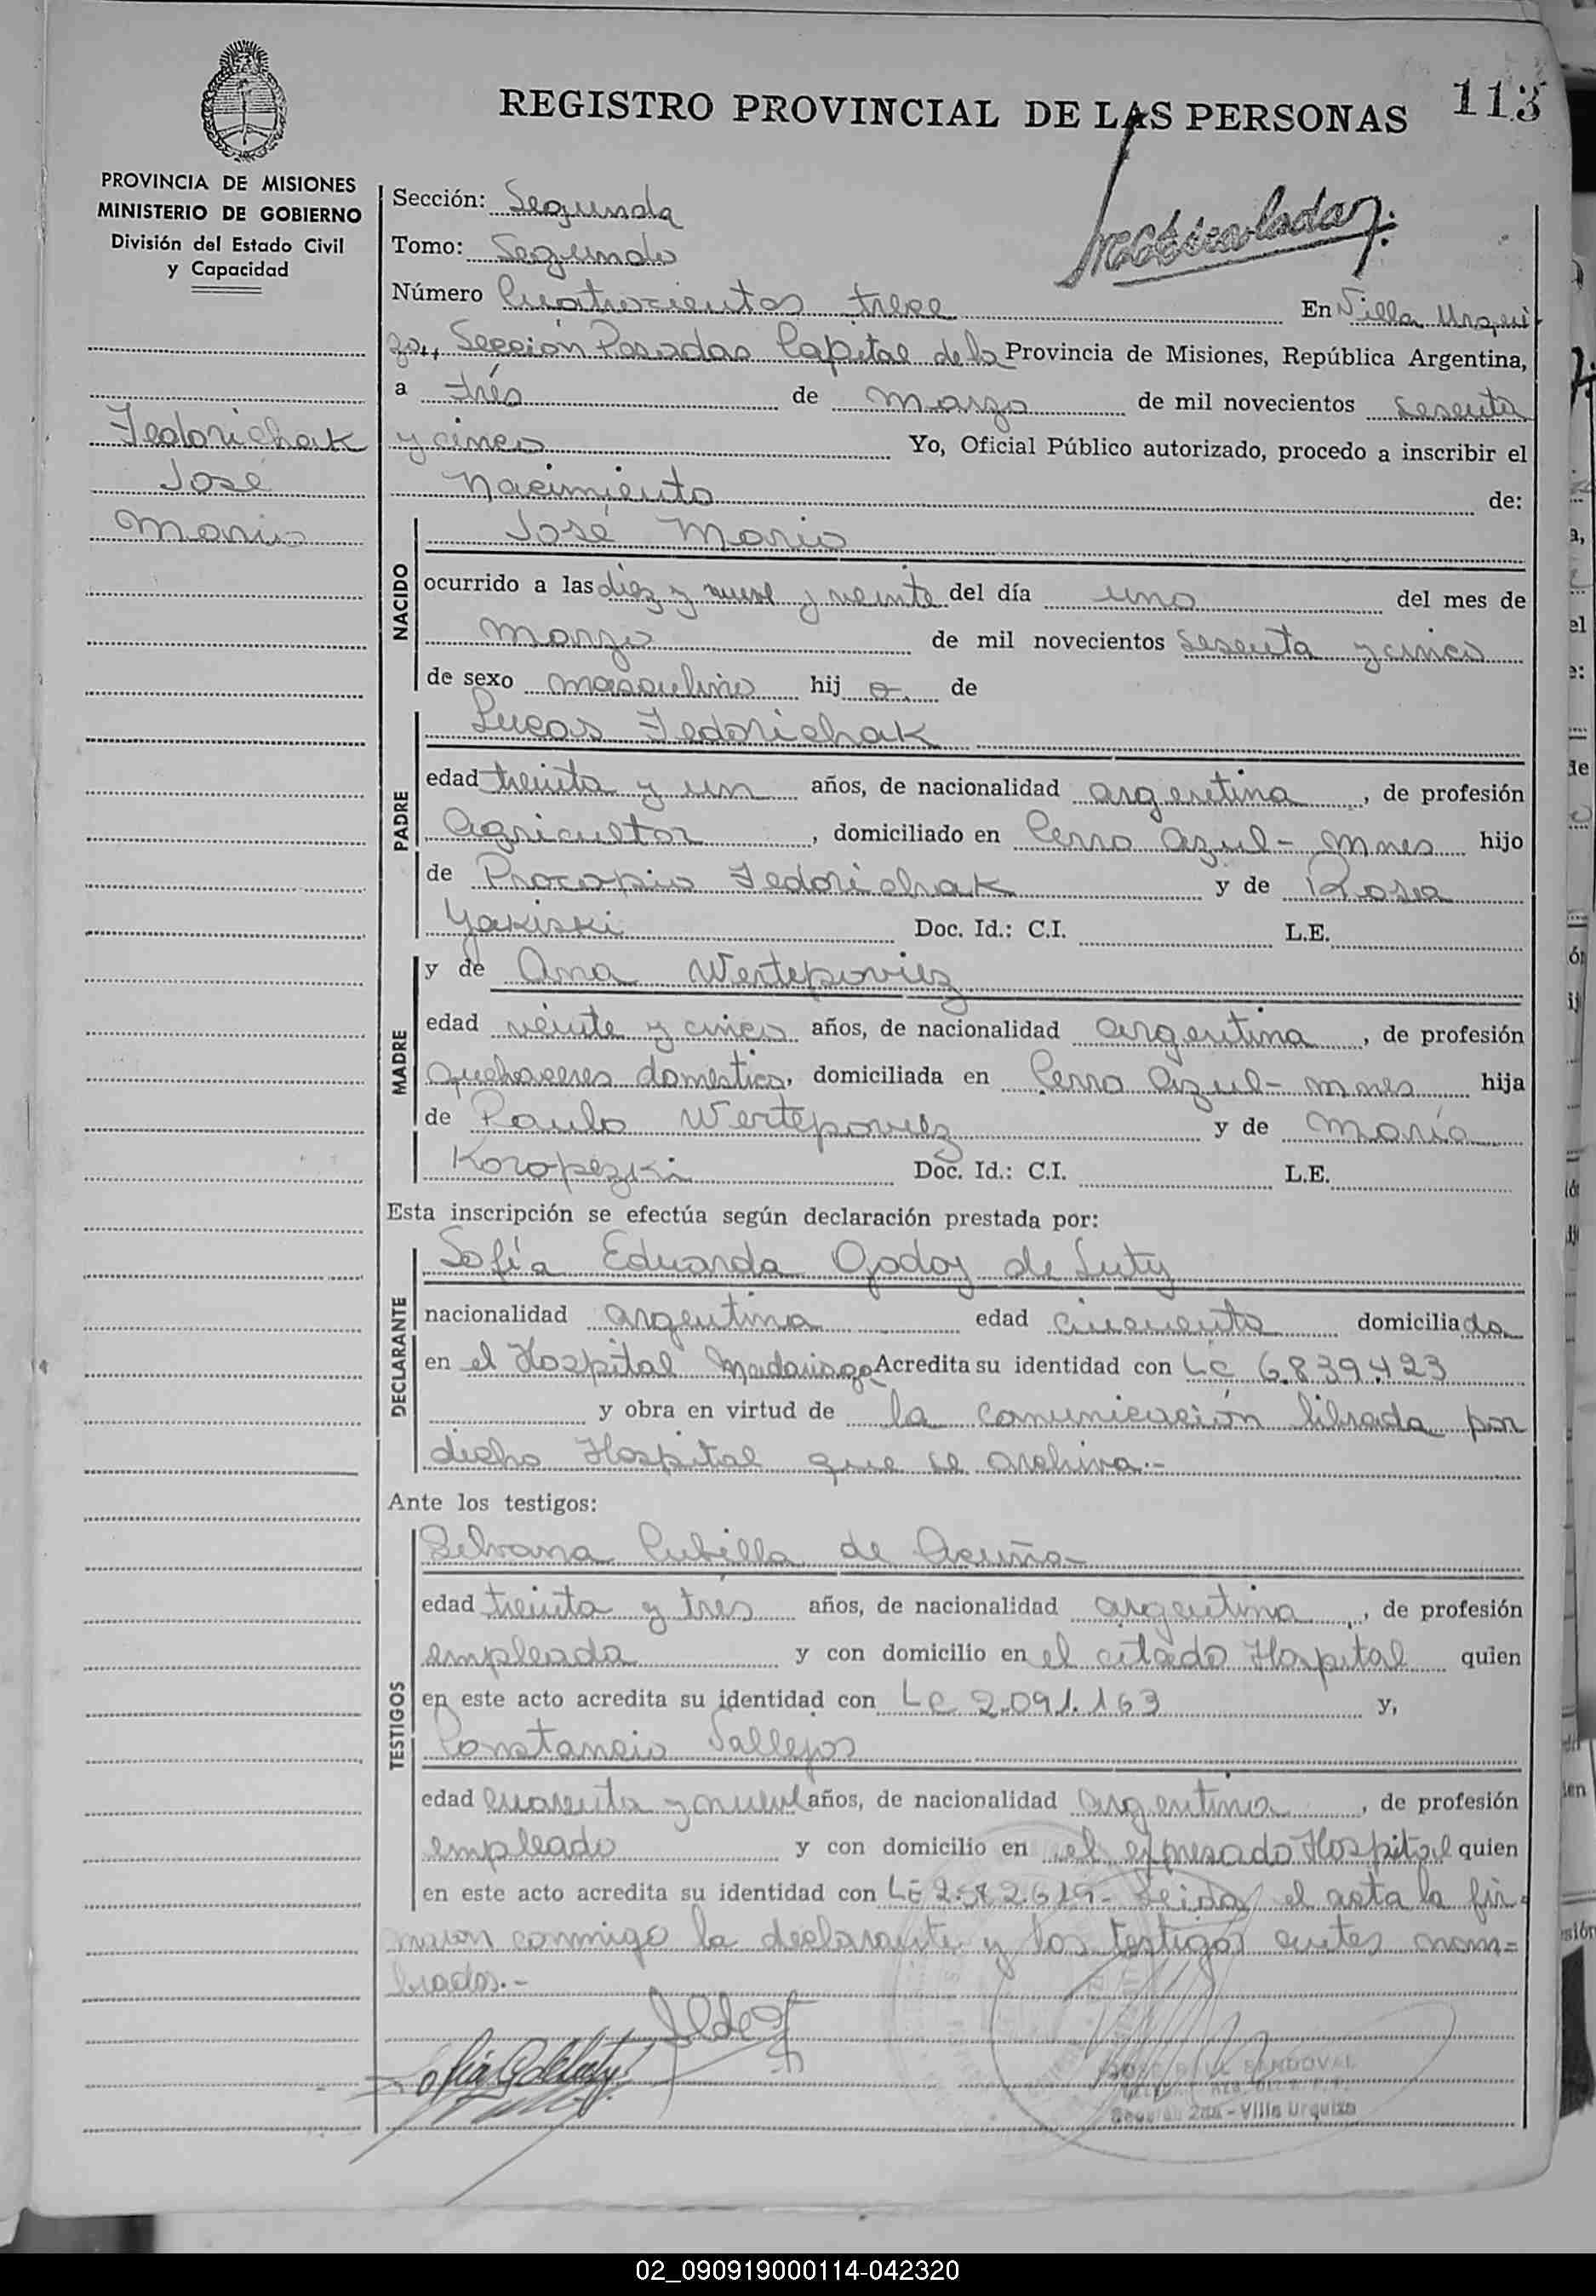 REGISTRO PROVINCIAL DE LAS PERSONAS
113
PROVINCIA DE MISIONES
MINISTERIO DE GOBIERNO
División del Estado Civil
y Capacidad
Fedorichak
José
Mario
Sección: Segunda
Tomo: Segundo
Número Cuatrocientos trece En Villa Urqui
za, Sección Posadas Capital de la Provincia de Misiones, República Argentina,
a trés de marzo de mil novecientos sesenta
y cinco Yo, Oficial Público autorizado, procedo a inscribir el
Nacimiento de:
NACIDO
José Mario
ocurrido a las diez y nueve y veinte del día uno del mes de
Marzo de mil novecientos sesenta y cinco
de sexo masculino hij o. de
PADRE
Lucas Fedorichak
edad treinta y un años, de nacionalidad argentina, de profesión
Agricultor, domiciliado en Cerro Azul - Mnes hijo
de Procopio Fedorichak y de Rosa
Yakiski Doc. Id.: C.I. L.E.
MADRE
y de Ana Wertepovicz
edad veinte y cinco años, de nacionalidad argentina, de profesión
quehaceres doméstico, domiciliada en Cerro Azul - mnes hija
de Paulo Wertepovicz y de María
Koropezki Doc. Id.: C.I. L.E.
Esta inscripción se efectúa según declaración prestada por:
DECLARANTE
Sofía Eduarda Godoy de Luty
nacionalidad argentina edad cincuenta domiciliada
en el Hospital Madariaga Acredita su identidad con LC 6.839.423
y obra en virtud de la comunicación librada por
dicho Hospital que se archiva.-
Ante los testigos:
TESTIGOS
Silvana Cubilla de Acuña-
edad treinta y tres años, de nacionalidad argentina, de profesión
empleada y con domicilio en el citado Hospital quien
en este acto acredita su identidad con LC 2.091.163 y,
Constancio Vallejos
edad cuarenta y nueve años, de nacionalidad argentina, de profesión
empleado y con domicilio en el expresado Hospital quien
en este acto acredita su identidad con LE Leida el acta la fir-
maron conmigo la declarante y los testigos antes nom=
brados.-
RAUL SANDOVAL
Sección 2da - Villa Urquiza
02_090919000114-042320